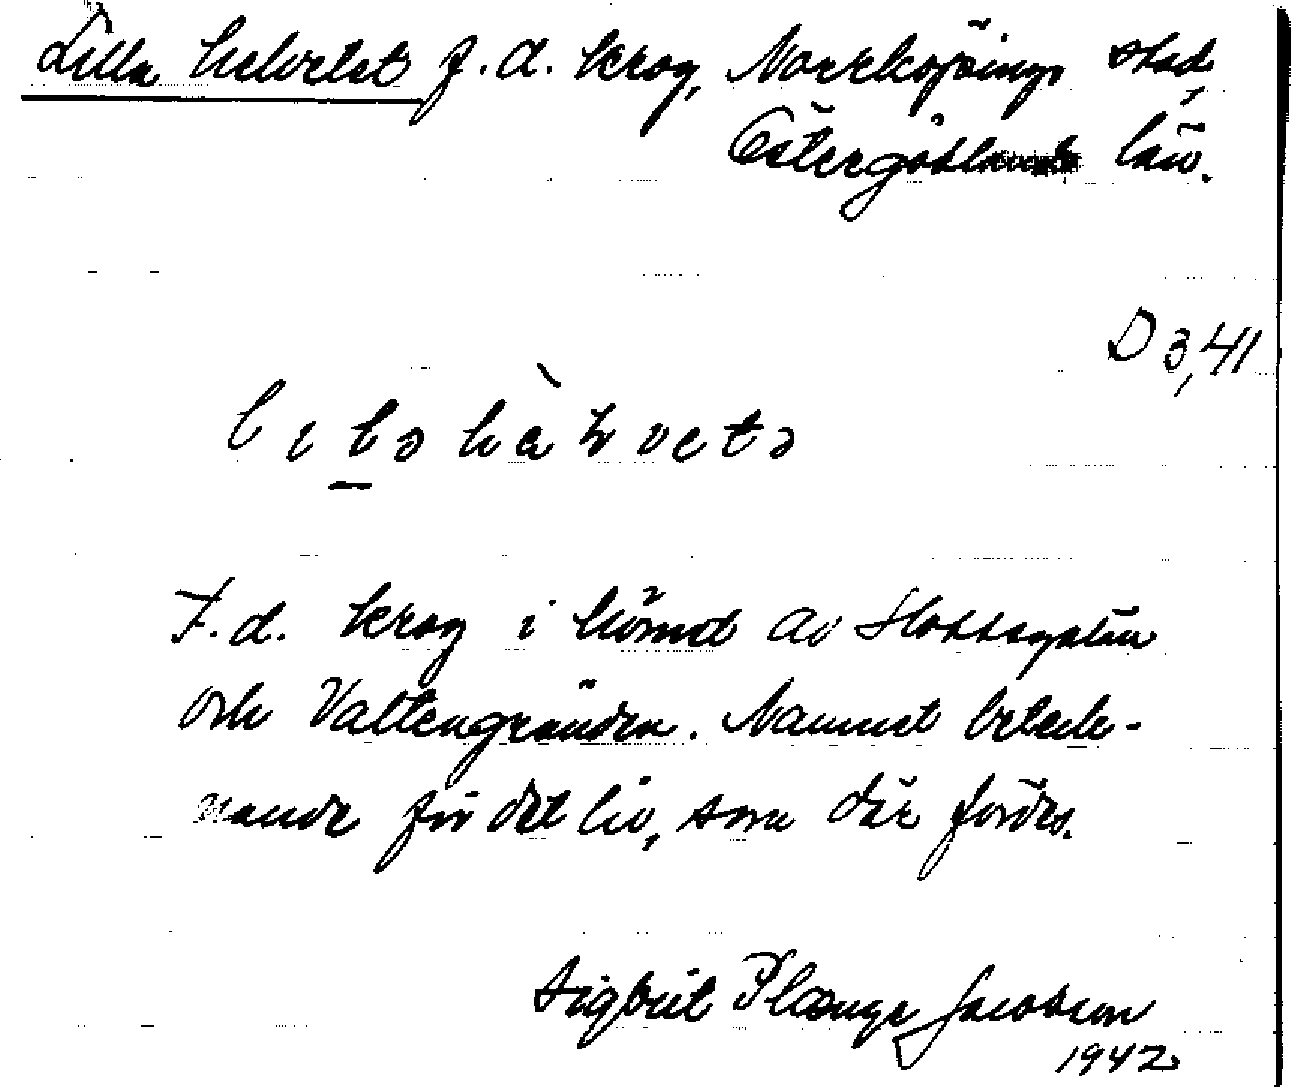 Lilla helvetet f.d. krog, Norrköpings stad,
Östergötlands län.
D 3,41
F.d. krog i hörnet av Slottsgatan
och Vattengränden. Namnet beteck-
nande för det liv, som där fördes.
Sigbrit Plænge Jacobson
1942